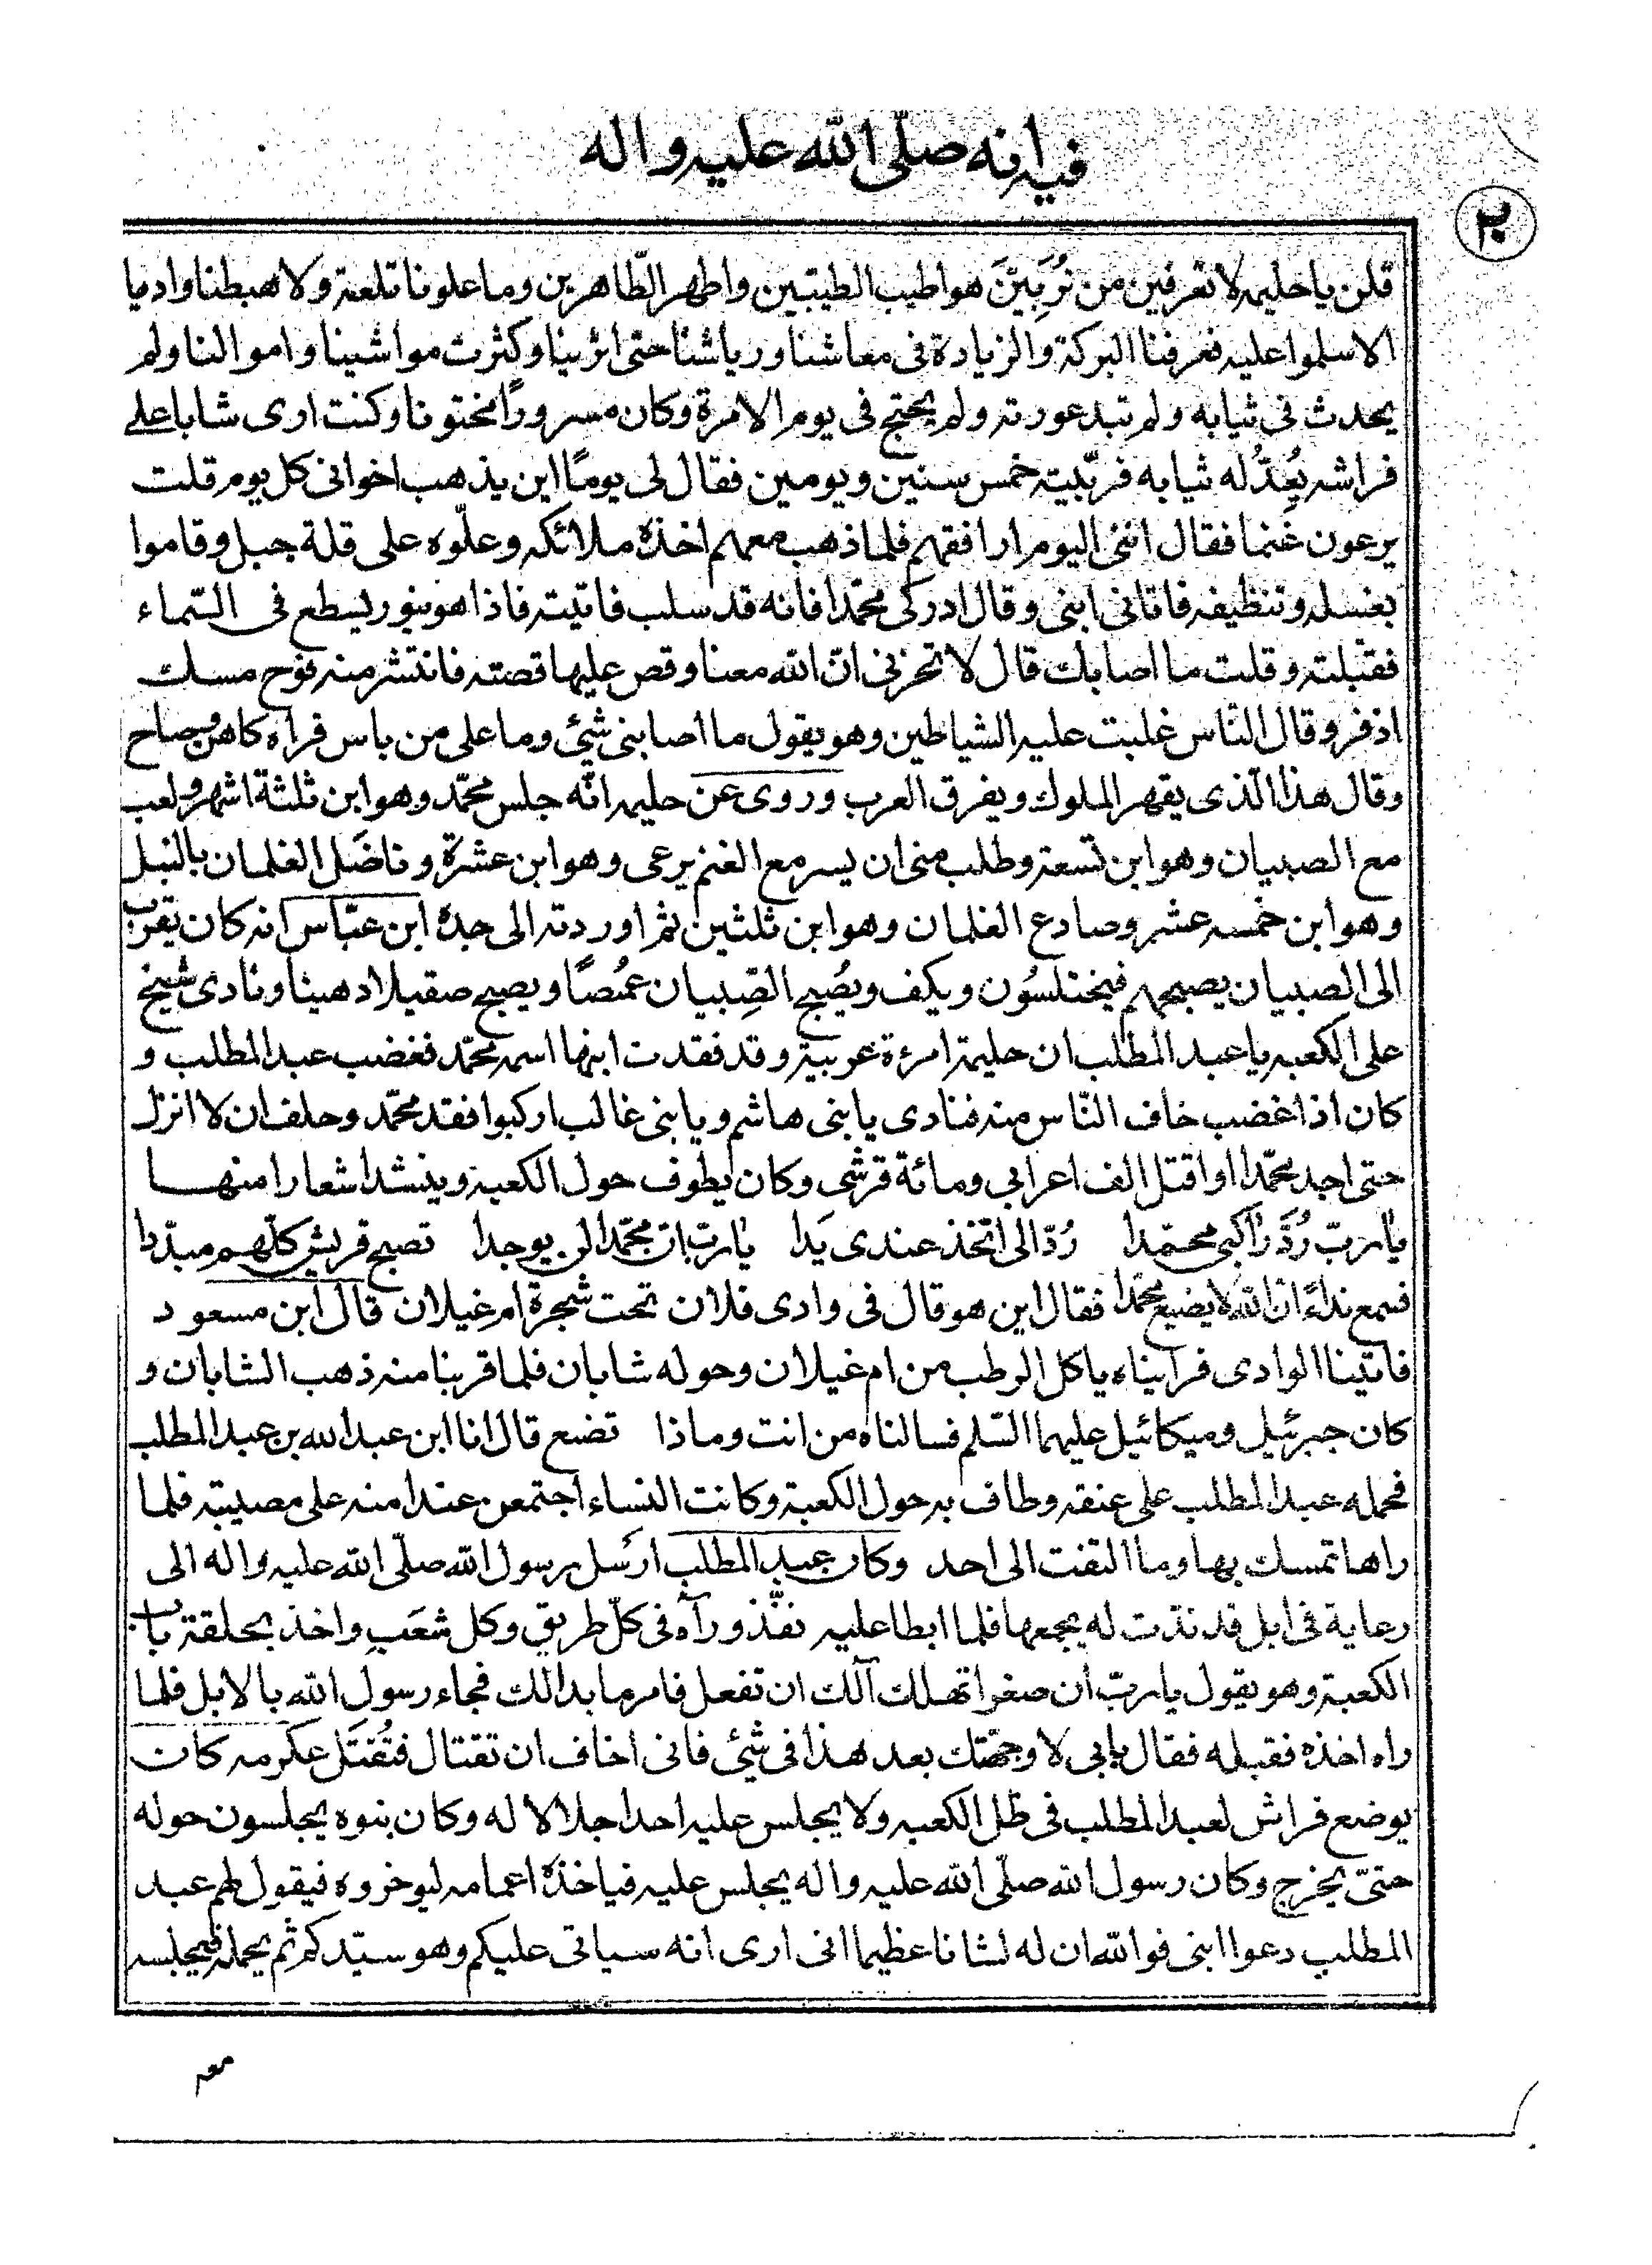 فيه انه صلّى الله عليه واله
٢٠
قلن يا حليمه لا تعرفين من تُرَبِيّنَ هو اطيب الطيبين واطهر الطّاهرين وما علونا تلعة ولا هبطنا واديا
الا سلموا عليه فعرفنا البركة والزيادة فى معاشنا ورياشنا حتى اثرينا وكثرت مواشينا واموالنا ولم
يحدث فى ثيابه ولم تبد عورته ولم يحتج فى يوم الا مرة وكان مسرورًا مختونا وكنت ارى شابا على
فراشه يُعِدُّ له ثيابه فربّيته خمس سنين ويومين فقال لى يومًا اين يذهب اخوانى كل يوم قلت
يرعون غنما فقال اننى اليوم ارافقهم فلما ذهب معهم اخذه ملائكه وعلّوه على قلة جبل وقاموا
بغسله وتنظيفه فاتانى ابنى وقال ادركى محمّدا فانه قد سلب فاتيته فاذا هو بنور يسطع فى السّماء
فقبلته وقلت ما اصابك قال لا تحزنى انّ الله معنا وقص عليها قصته فانتشر منه فوح مسك
اذفر وقال النّاس غلبت عليه الشياطين وهو يقول ما اصابنى شئ وما على من باس فرآه كاهن وصاح
وقال هذا الّذى يقهر الملوك ويفرق العرب وروى عن حليمه انّه جلس محمّد وهو ابن ثلثة اشهر ولعب
مع الصبيان وهو ابن تسعة وطلب منى ان يسر مع الغنم يرعى وهو ابن عشرة وناضَل الغلمان بالنبل
وهو ابن خمسه عشر وصارع الغلمان وهو ابن ثلثين ثم اوردته الى جده ابن عبّاس انه كان يقرب
الى الصبيان يصبحهم فيختلسُون ويكف ويُصبح الصّبيان غمُصًا ويصبح صقيلا دهينا ونادى شيخ
على الكعبه يا عبد المطلب ان حليمة امرءة عربية وقد فقدت ابنها اسمه محمّد فغضب عبد المطلب و
كان اذا غضب خاف النّاس منه فنادى يا بنى هاشم ويا بنى غالب اركبوا فقد محمّد وحلف ان لا انزل
حتى اجد محمّدا او اقتل الف اعرابى ومائة قرشى وكان يطوف حول الكعبة وينشد اشعارا منهـا
يا ربّ رُدَّ راكبى محمّدا رُدّ الى اتخذ عندى يَدا يا ربّ ان محمّدا لن يوجدا تصبح قريش كلّهم مبدّدا
فسمع نداءً ان الله لا يضيع محمّدا فقال اين هو قال فى وادى فلان تحت شجرة ام غيلان قال ابن مسعود
فاتينا الوادى فرايناه ياكل الرطب من ام غيلان وحوله شابان فلما قربنا منه ذهب الشابان و
كان جبرئيل وميكائيل عليهما السّلم فسالناه من انت وماذا تصنع قال انا ابن عبد الله بن عبد المطلب
فحمله عبد المطلب على عنقه وطاف به حول الكعبة وكانت النساء اجتمعن عند امنه على مصيبته فلما
راها تمسك بها وما التفت الى احد وكان عبد المطلب ارسَل رسول الله صلّى الله عليه واله الى
رعاية فى ابل قد ندّت له يجمعها فلما ابطا عليه نفّذ وراه فى كلّ طريق وكل شعَب واخذ بحلقة باب
الكعبة وهو يقول يا ربّ ان صغرا تهلك آلك ان تفعل فامر ما بدا لك فجاء رسول الله بالابل فلما
راه اخذه فقبله فقال بابى لا وجهّتك بعد هذا فى شئ فانى اخاف ان تغتال فتُقتَل عكرمه كان
يوضع فراش لعبد المطلب فى ظل الكعبه ولا يجلس عليه احد اجلالا له وكان بنوه يجلسون حوله
حتىّ يخرج وكان رسول الله صلّى الله عليه واله يجلس عليه فياخذه اعمامه ليوخروه فيقول لهم عبد
المطلب دعوا ابنى فو الله ان له لشانا عظيما انى ارى انه سياتى عليكم وهو سيّدكم ثم يحمله فيجلسه
معه